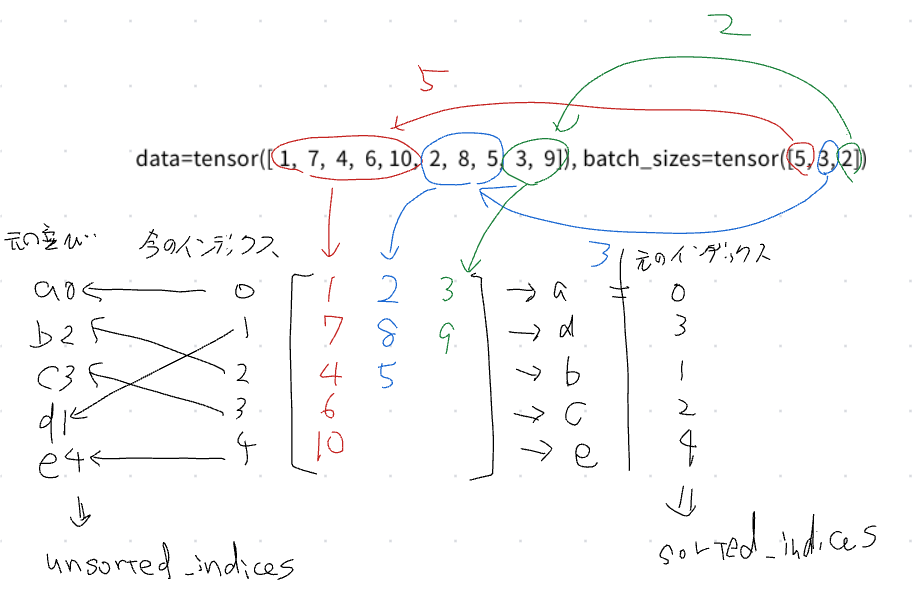 2
5
data=tensor([ 1, 7, 4, 6, 10, 2, 8, 5, 3, 9]), batch_sizes=tensor([5, 3, 2])
3
元の並び 今のインデックス 元のインデックス
a0 0 1 2 3 → a = 0
b2 1 7 8 9 → d 3
c3 2 4 5 → b 1
d1 3 6 → c 2
e4 4 10 → e 4
unsorted_indices sorted_indices